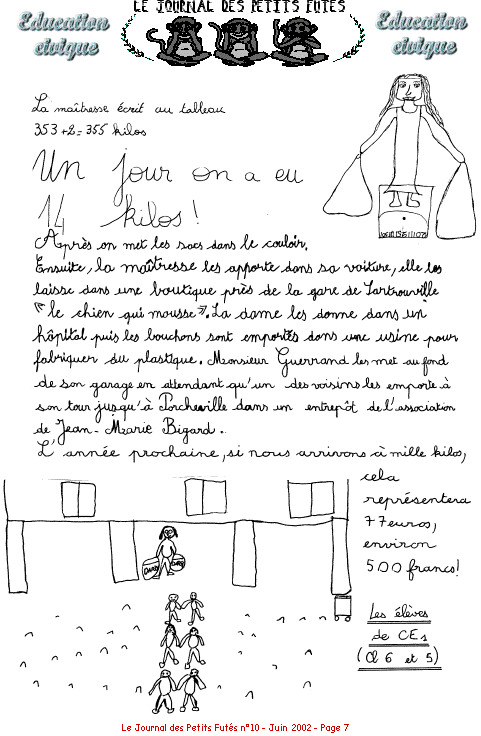 LE JOURNAL DES PETITS FUTES
Education civique
Education civique
La maîtresse écrit au tableau
353+2=355 kilos
Un jour on a eu
14 kilos!
Après on met les sacs dans le couloir.
Ensuite, la maîtresse les apporte dans sa voiture, elle les
laisse dans une boutique près de la gare de Sartrouville
"le chien qui mousse". La dame les donne dans un
hôpital puis les bouchons sont emportés dans une usine pour
fabriquer du plastique. Monsieur Guerrand les met au fond
de son garage en attendant qu'un des voisins les emporte à
son tour jusqu'à Porcheville dans un entrepôt de l'association
de Jean-Marie Bigard.
L'année prochaine, si nous arrivons à mille kilos,
cela
représentera
77euros,
environ
500 francs!
Les élèves
de CE1
(Cl 6 et 5)
Le Journal des Petits Futés n°10 - Juin 2002 - Page 7